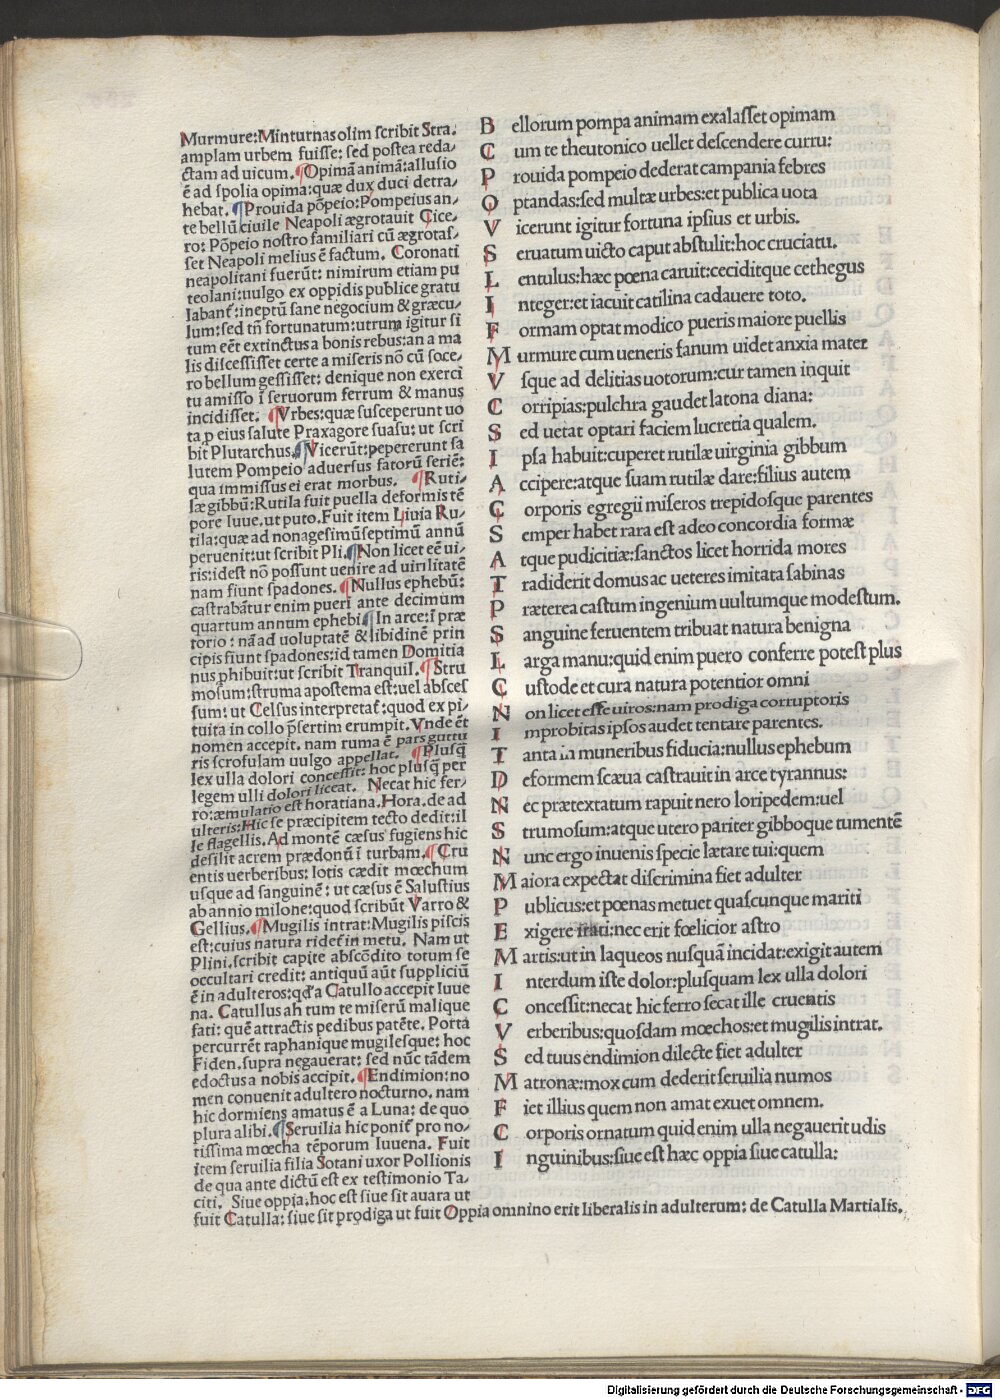 Murmure:Minturnas olim scribit Stra.
amplam urbem fuisse: sed postea reda-
ctam ad uicum. ¶Opimā animā:allusio
ē ad spolia opima:quæ dux duci detra-
hebat. ¶Prouida pōpeio:Pompeius an-
te bellū ciuile Neapoli ægrotauit Cice-
ro: Pōpeio nostro familiari cū ægrotas-
set Neapoli melius ē factum. Coronati
neapolitani fuerūt: nimirum etiam pu
teolani:uulgo ex oppidis publice gratu
labant̄:ineptū sane negocium & græcu-
lum:sed tn̄ fortunatum:utrum igitur si
tum eēt extinctus a bonis rebus:an a ma
lis discessisset certe a miseris nō cū soce-
ro bellum gessisset: denique non exerci
tu amisso ī seruorum ferrum & manus
incidisset. ¶Vrbes:quæ susceperunt uo
ta p eius salute Praxagore suasu: ut scri
bit Plutarchus.¶Vicerūt:pepererunt sa
lutem Pompeio aduersus fatorū seriē:
qua immissus ei erat morbus. ¶Ruti-
læ gibbū:Rutila fuit puella deformis tē
pore Iuue.ut puto.Fuit item Liuia Ru-
tila:quæ ad nonagesimūseptimū annū
peruenit:ut scribit Pli.¶Non licet eē ui-
ris:idest nō possunt uenire ad uirilitatē
nam fiunt spadones. ¶Nullus ephebū:
castrabātur enim pueri ante decimum
quartum annum ephebi¶In arce:ī præ
torio: nā ad uoluptatē & libidinē prin
cipis fiunt spadones:id tamen Domitia
nus phibuit:ut scribit Tranquil.¶Stru
mosum:struma apostema est:uel absces
sum: ut Celsus interpretat̄:quod ex pi-
tuita in collo p̄sertim erumpit. Vnde ēt
nomen accepit. nam ruma ē pars guttu
ris scrofulam uulgo appellat. ¶Plusq̄
lex ulla dolori concessit: hoc plusq̄ per
legem ulli dolori liceat. Necat hic fer-
ro:æmulatio est horatiana.Hora.de ad
ulteris:Hic se præcipitem tecto dedit:il
le flagellis.Ad montē cæsus fugiens hic
desilit acrem prædonū ī turbam.¶Cru
entis uerberibus: lotis cædit mœchum
usque ad sanguinē: ut cæsus ē Salustius
ab annio milone:quod scribūt Varro &
Gellius.¶Mugilis intrat:Mugilis piscis
est:cuius natura ridet̄ in metu. Nam ut
Plini.scribit capite abscōdito totum se
occultari credit: antiquū aūt suppliciū
ē in adulteros:qd̄ a Catullo accepit Iuue
na. Catullus ah tum te miserū malique
fati: quē attractis pedibus patēte. Porta
percurrēt raphanique mugilesque: hoc
Fiden.supra negauerat: sed nūc tādem
edoctus a nobis accipit. ¶Endimion:no
men conuenit adultero nocturno. nam
hic dormiens amatus ē a Luna: de quo
plura alibi.¶Seruilia hic ponit̄ pro no-
tissima mœcha tēporum Iuuena. Fuit
item seruilia filia Sotani uxor Pollionis
de qua ante dictū est ex testimonio Ta-
citi. Siue oppia.hoc est siue sit auara ut
fuit Catulla: siue sit prodiga ut fuit Oppia omnino erit liberalis in adulterum: de Catulla Martialis.
B ellorum pompa animam exalasset opimam
C um te theutonico uellet descendere curru:
P rouida pompeio dederat campania febres
O ptandas:sed multæ urbes:et publica uota
V icerunt igitur fortuna ipsius et urbis.
S eruatum uicto caput abstulit:hoc cruciatu.
L entulus:hæc pœna caruit:ceciditque cethegus
I nteger:et iacuit catilina cadauere toto.
F ormam optat modico pueris maiore puellis
M urmure cum ueneris fanum uidet anxia mater
V sque ad delitias uotorum:cur tamen inquit
C orripias:pulchra gaudet latona diana:
S ed uetat optari faciem lucretia qualem.
I psa habuit:cuperet rutilæ uirginia gibbum
A ccipere:atque suam rutilæ dare:filius autem
C orporis egregii miseros trepidosque parentes
S emper habet rara est adeo concordia formæ
A tque pudicitiæ:sanctos licet horrida mores
T radiderit domus ac ueteres imitata sabinas
P ræterea castum ingenium uultumque modestum.
S anguine feruentem tribuat natura benigna
L arga manu:quid enim puero conferre potest plus
C ustode et cura natura potentior omni
N on licet esse uiros:nam prodiga corruptoris
I mprobitas ipsos audet tentare parentes.
T anta in muneribus fiducia:nullus ephebum
D eformem scæua castrauit in arce tyrannus:
N ec prætextatum rapuit nero loripedem:uel
S trumosum:atque utero pariter gibboque tumentē
N unc ergo inuenis specie lætare tui:quem
M aiora expectat discrimina fiet adulter
P ublicus:et pœnas metuet quascunque mariti
E xigere irati:nec erit fœlicior astro
M artis:ut in laqueos nusquā incidat:exigit autem
I nterdum iste dolor:plusquam lex ulla dolori
C oncessit:necat hic ferro secat ille cruentis
V erberibus:quosdam mœchos:et mugilis intrat.
S ed tuus endimion dilecte fiet adulter
M atronæ:mox cum dederit seruilia numos
F iet illius quem non amat exuet omnem.
C orporis ornatum quid enim ulla negauerit udis
I nguinibus:siue est hæc oppia siue catulla:
Digitalisierung gefördert durch die Deutsche Forschungsgemeinschaft - DFG